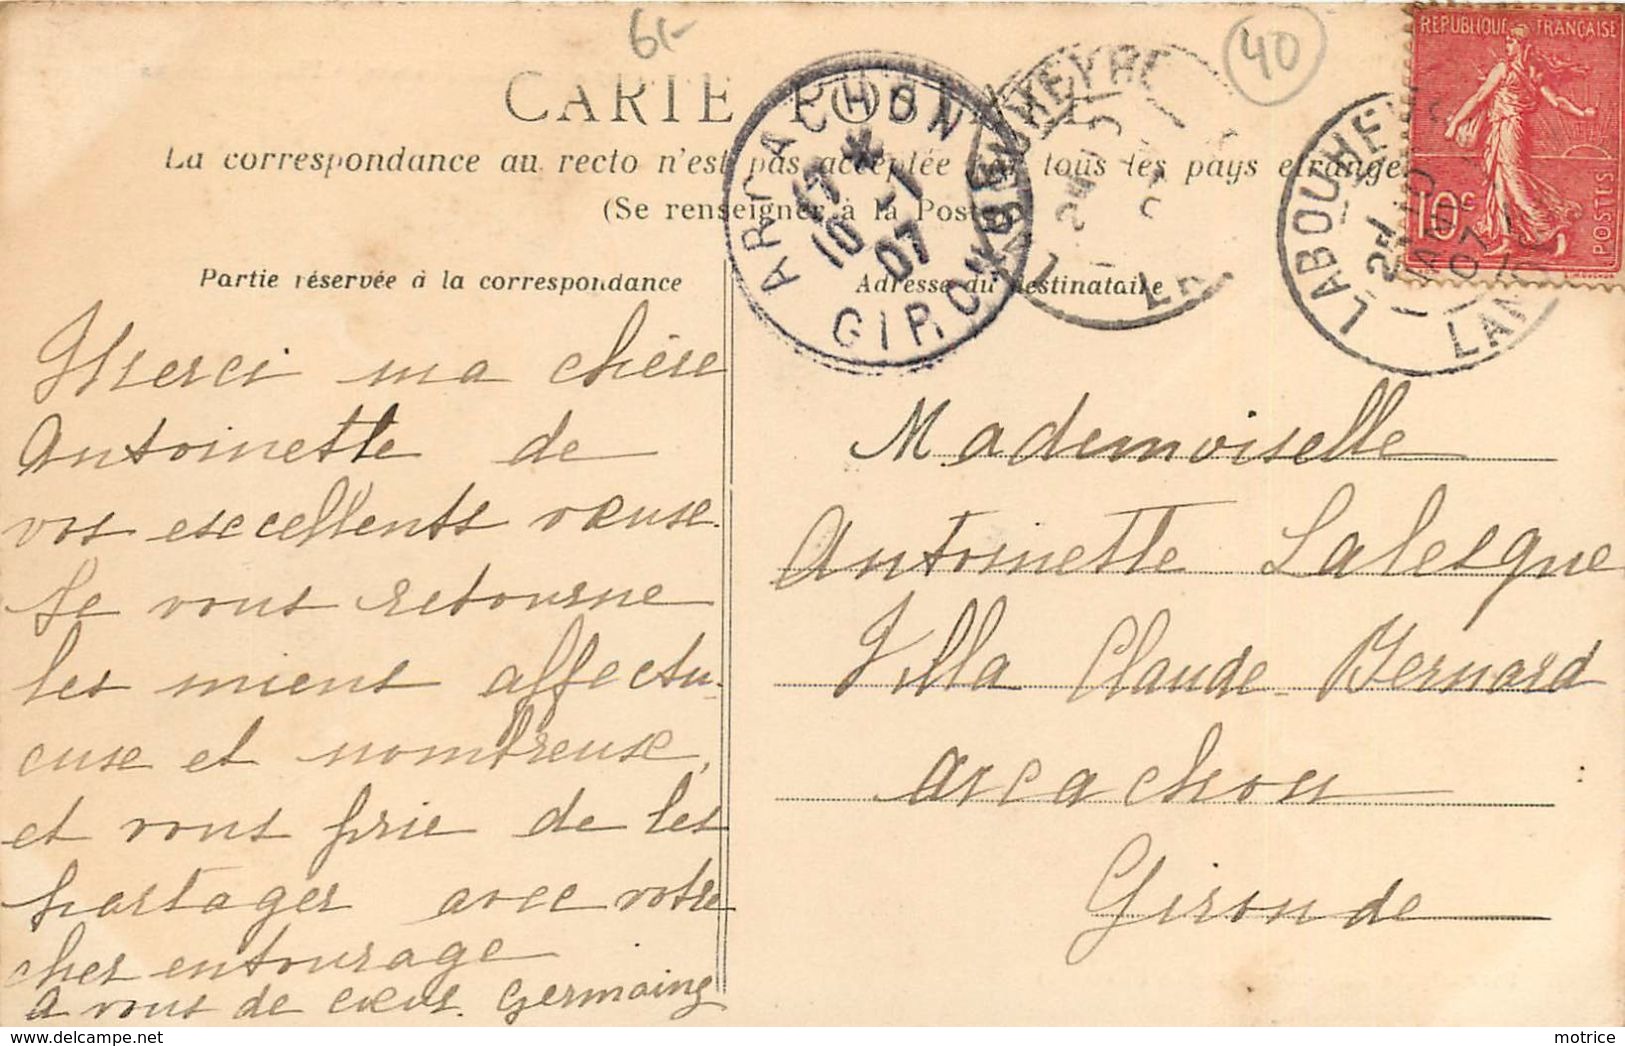 61-
40
CARTE POSTALE
La correspondance au recto n'est pas acceptée par tous les pays étrangers
(Se renseigner à la Poste)
Partie réservée à la correspondance
Adresse du destinataire
ARCACHON
17
10 -1
07
GIRONDE
LABOUHEYRE
LABOUHEYRE
LANDES
REPUBLIQUE FRANÇAISE
10c
POSTES
Merci ma chère
Antoinette de
vos excellents vœux.
Je vous retourne
les miens affectu-
euse et nombreuse,
et vous prie de les
partager avec votre
cher entourage
A vous de cœur. Germaine
Mademoiselle
Antoinette Lalesque
Villa Claude-Bernard
Arcachon
Gironde
motrice